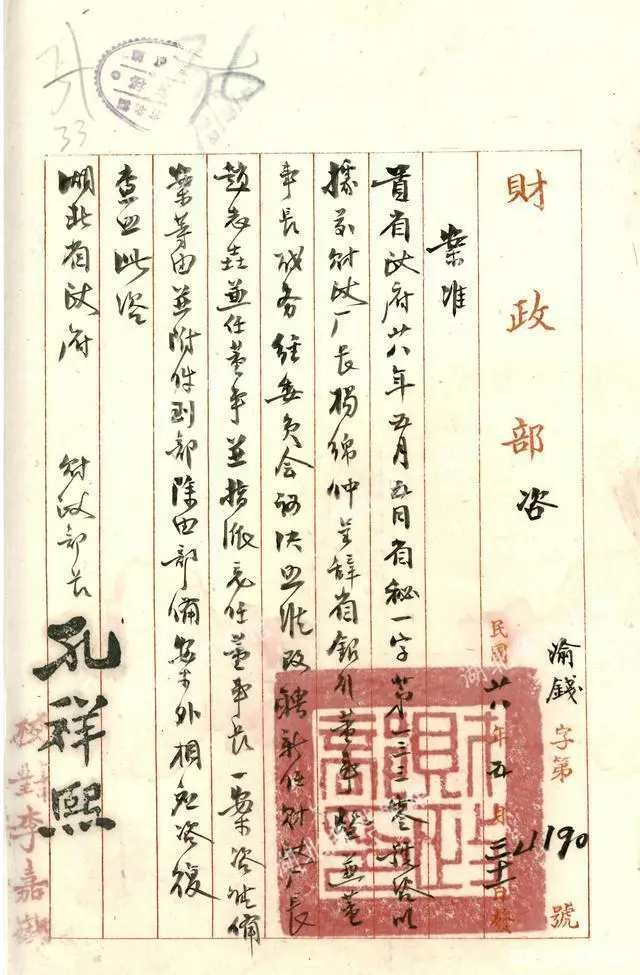 財政部咨
渝錢字第 號
民國廿八年五月三十一日發
案准
貴省政府廿八年五月五日省秘一字第一三三零號咨以
據前財政厅長楊綿仲呈辞省銀行董事暨兼董
事長職务經委員会議決照准改聘新任財政厅長
趙志垚兼任董事並指派兼任董事長一案咨請備
案等由並附件到部除由部備案外相應咨復
查照此咨
湖北省政府
財政部長 孔祥熙
校對李嘉
33